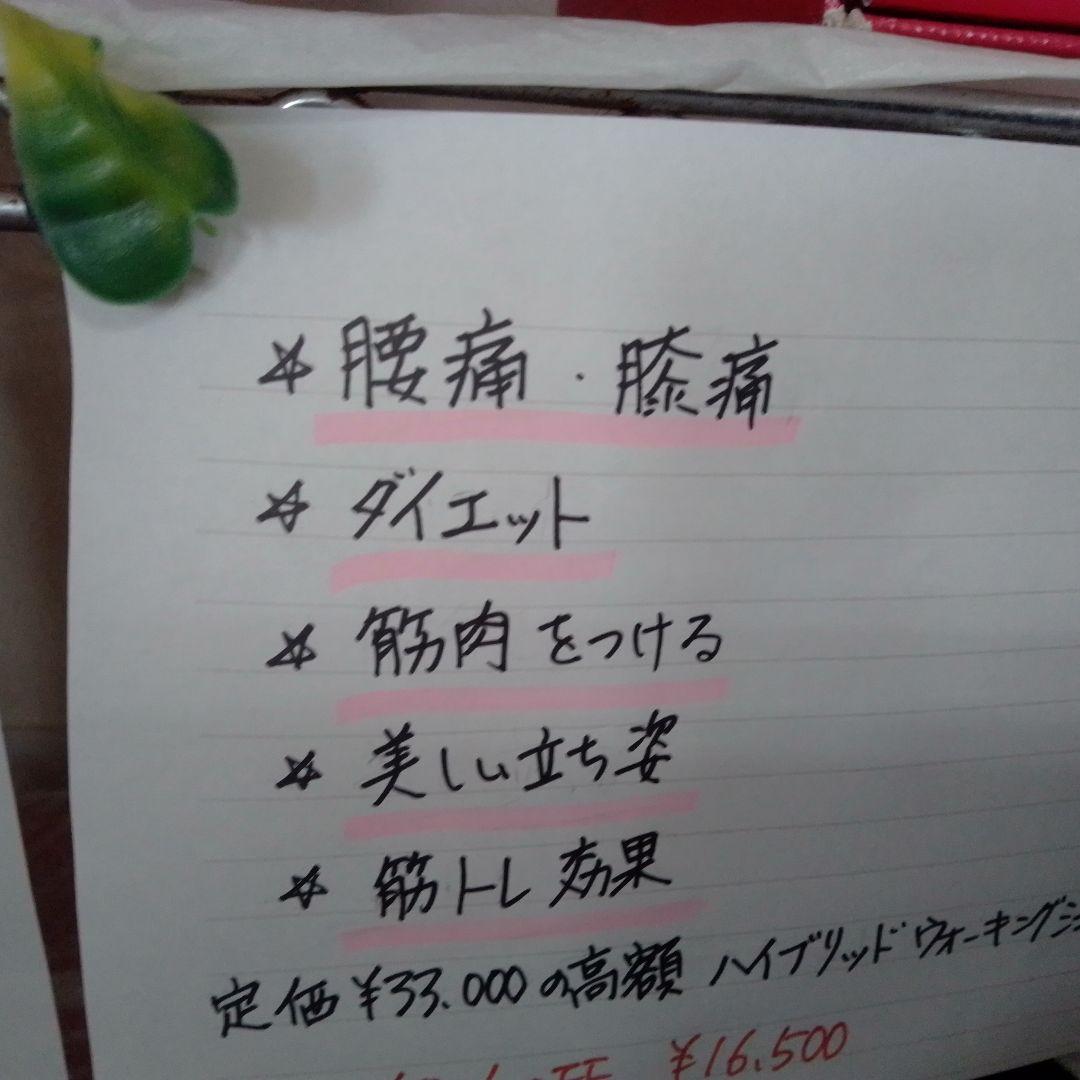 ☆ 腰痛・膝痛
☆ ダイエット
☆ 筋肉をつける
☆ 美しい立ち姿
☆ 筋トレ効果
定価¥33.000の高額 ハイブリッドウォーキングシ
¥16.500